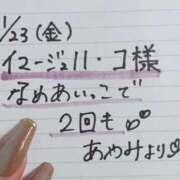 1/23(金)
イメージュ11・コ様
なめあいっこで
2回も
あやみより